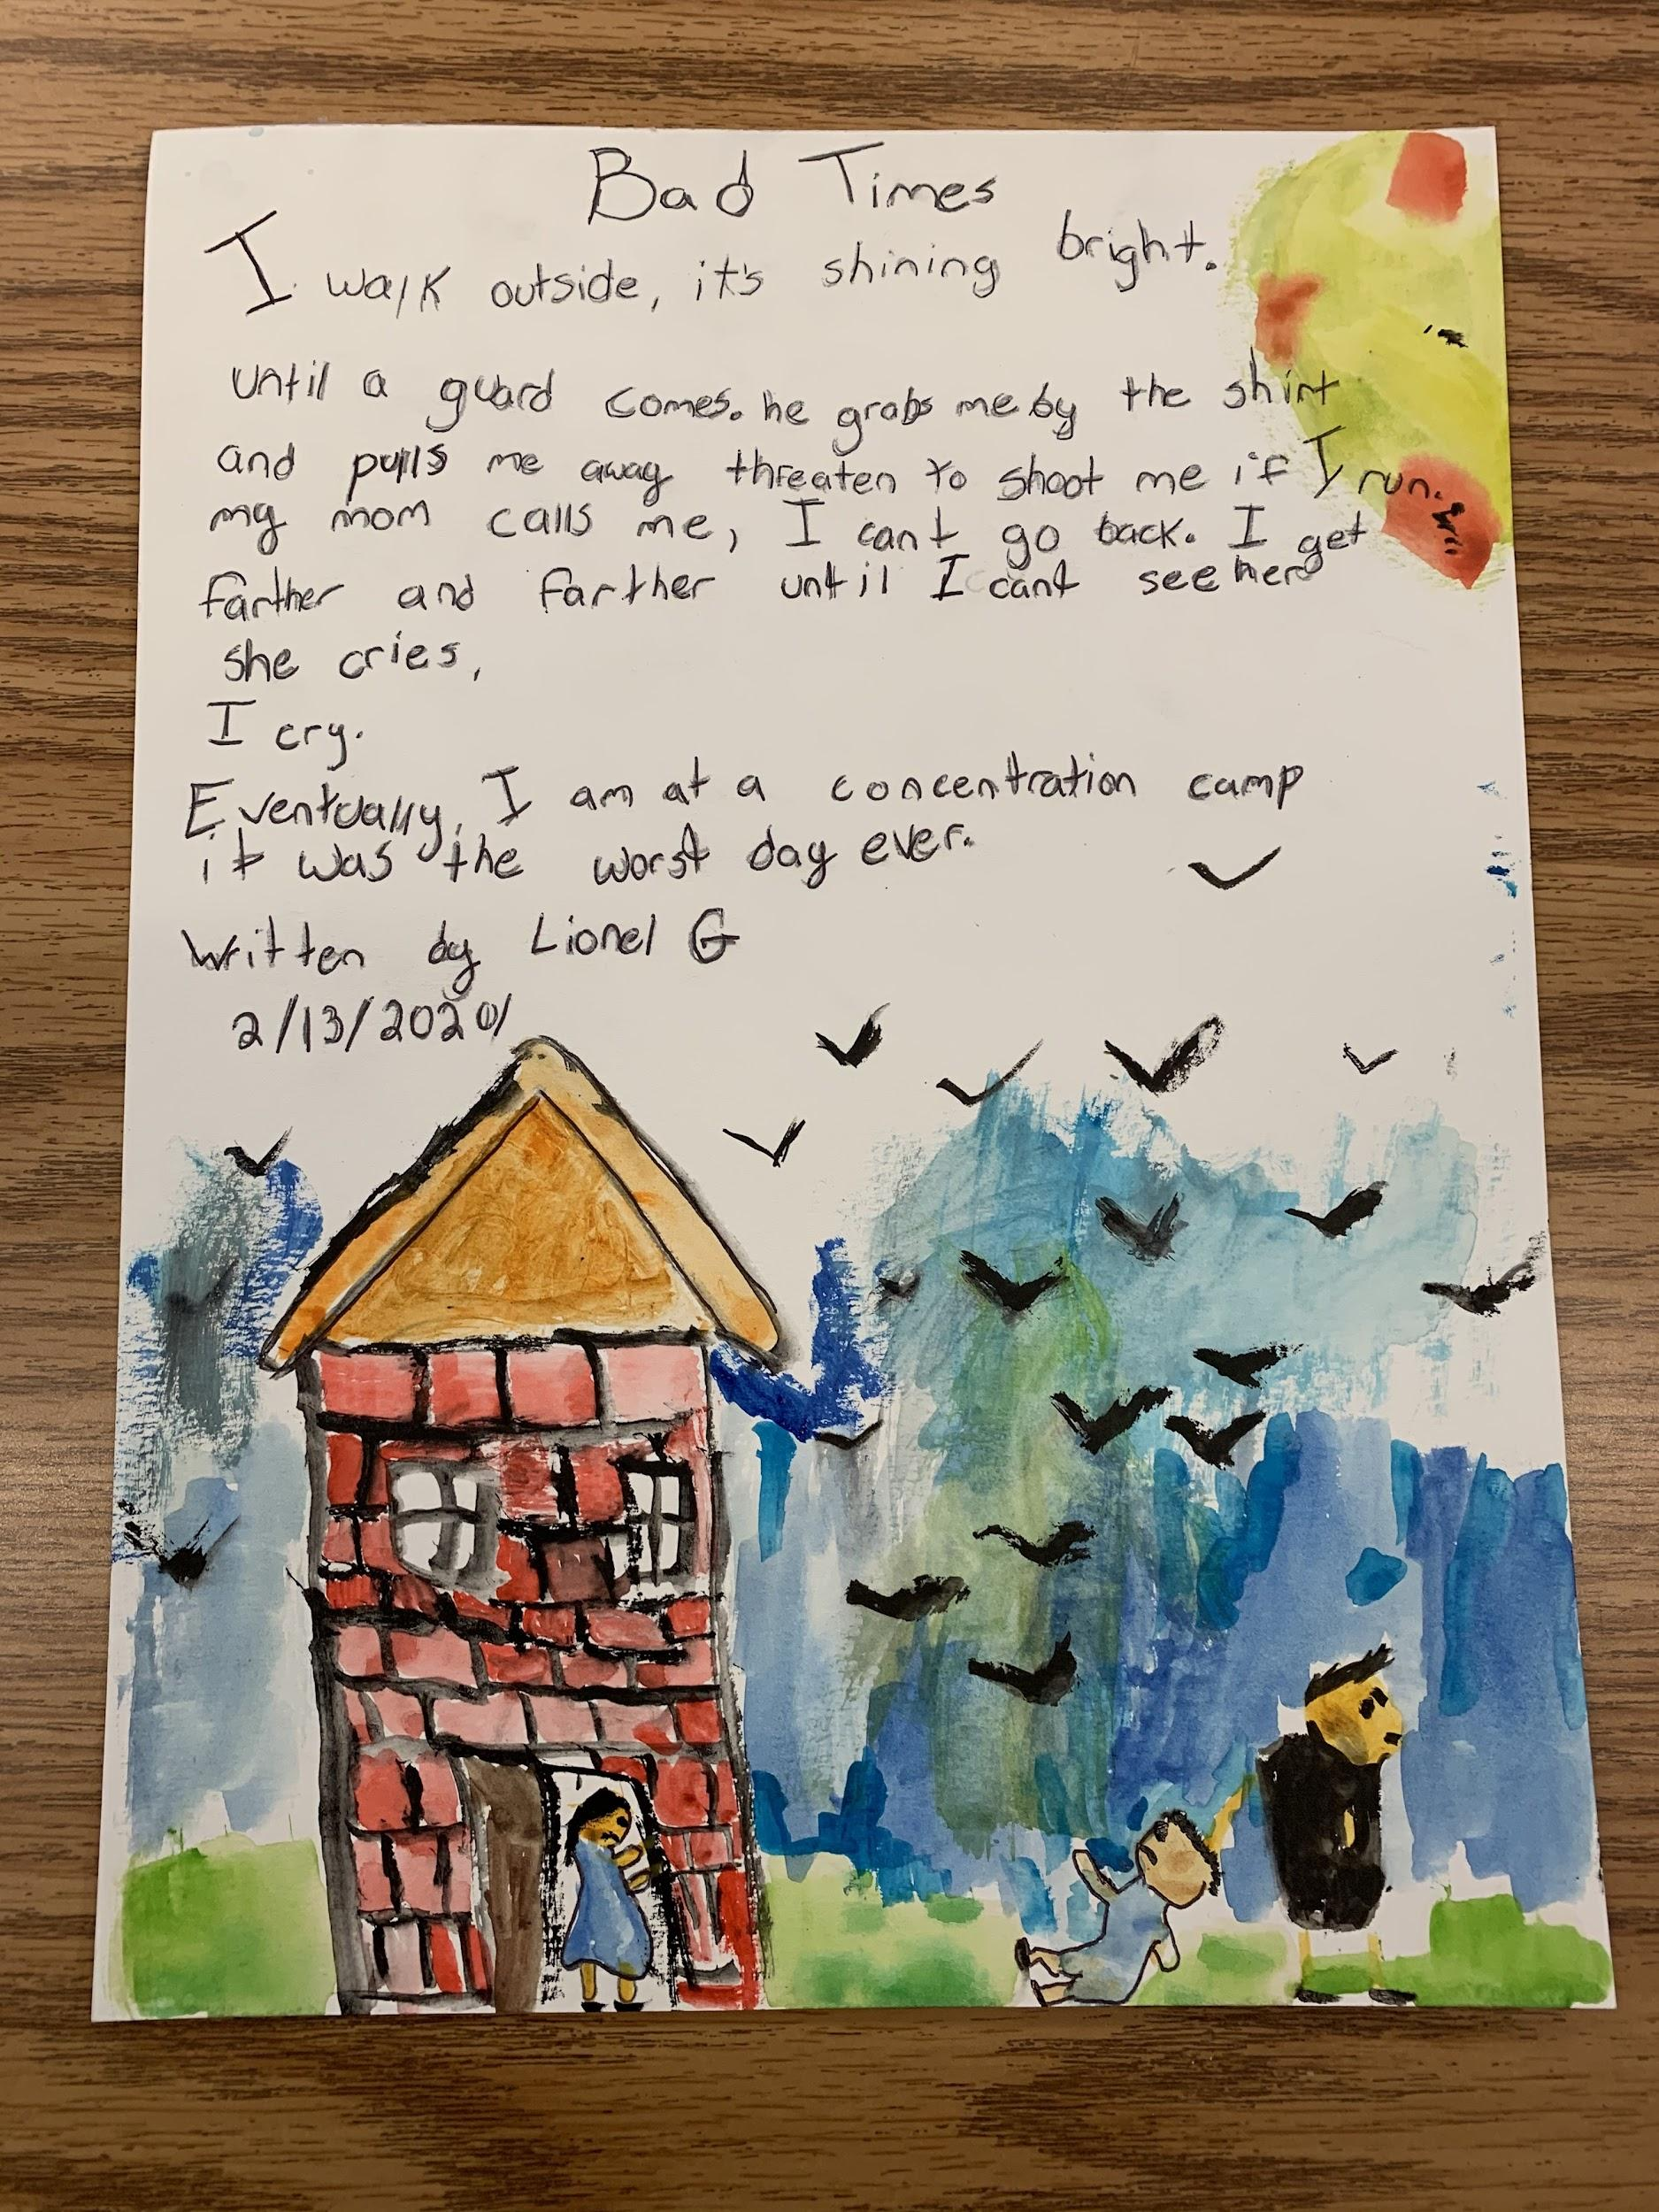 Bad Times
I walk outside, it's shining bright.
until a guard comes. he grabs me by the shirt
and pulls me away threaten to shoot me if I run.
my mom calls me, I cant go back. I get
farther and farther until I cant see her
she cries,
I cry.
Eventually, I am at a concentration camp
it was the worst day ever.
Written by Lionel G
2/13/2020